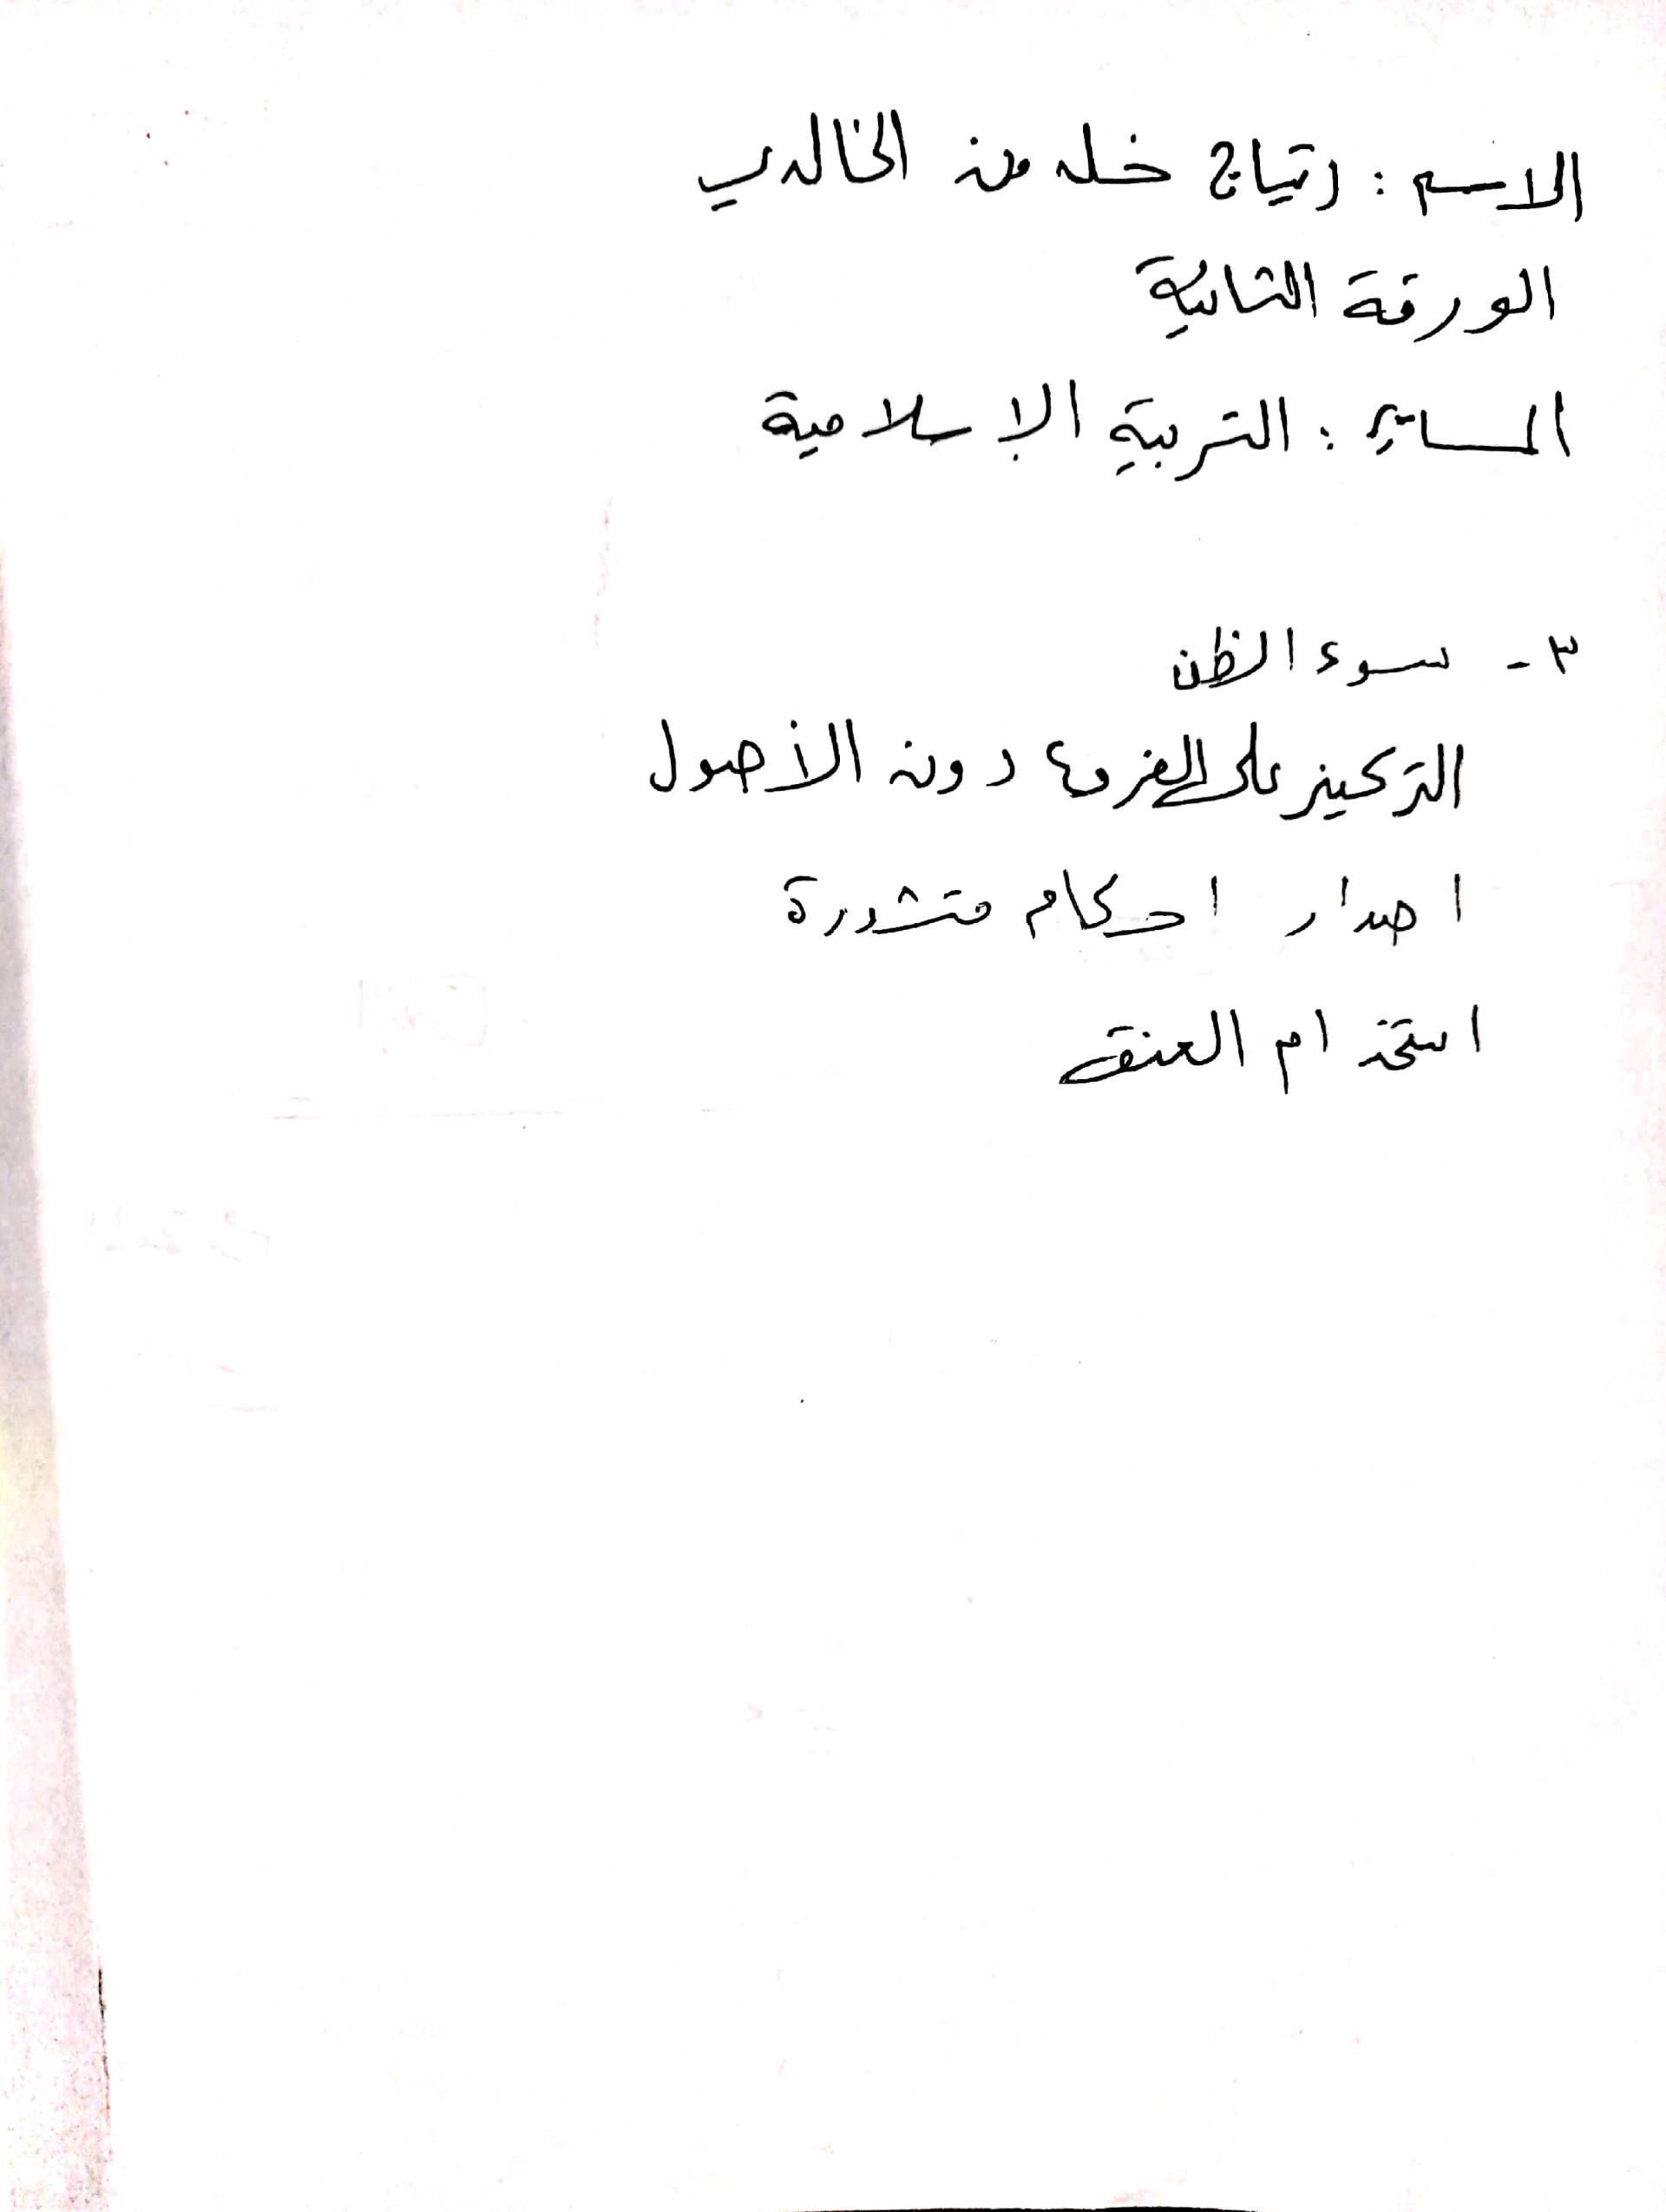 الاسم : رتياج خله من الخالدي
الورقة الثانية
المساير : التربية الإسلامية
٣ - سوء الظن
التركيز على الفروع دون الأصول
اصدار احكام متشددة
استخدام العنف